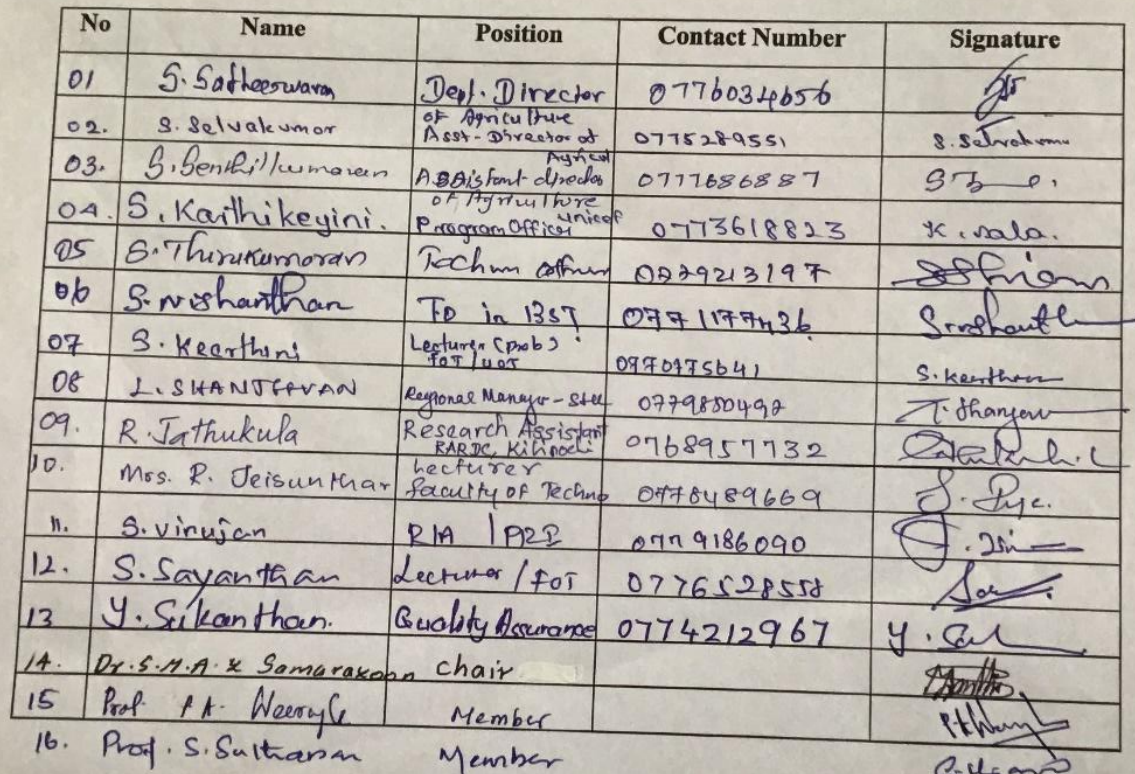 No Name Position Contact Number Signature
01 S. Satheeswaran Dept. Director of Agriculture 0776034656
02. S. Selvakumar Asst-Director of Agricul 0775289551 S. Selvakuma
03. S. Senthillkumaran Assistant director of Agriculture 0777686887
04. S. Karthikeyini. Program Officer unicef 0773618823 K. mala.
05 S. Thirukumaran
06 S. nishanthan TO in 0771177436 S. nishanth
07 S. Keerthini Lecturer (prob) FOT/UOJ 0770175641 S. Keerthin
08 Regional Manager - 0779850492 T. Shanjeev
09. R. Jathukula Research Assistant RARDC, Kilinochi 0768957732
10. Mrs. R. Jeisunthar Lecturer faculty of Techno 0778489669
11. S. virujan 0779186090
12. S. Sayanthan Lecturer / FOT 0776528558
13 Y. Sikanthan. Quality Assurance 0774212967
14. Dr. S.M.A. Samarakoon Chair
15 Prof. Member
16. Prof. S. Sutharsan Member